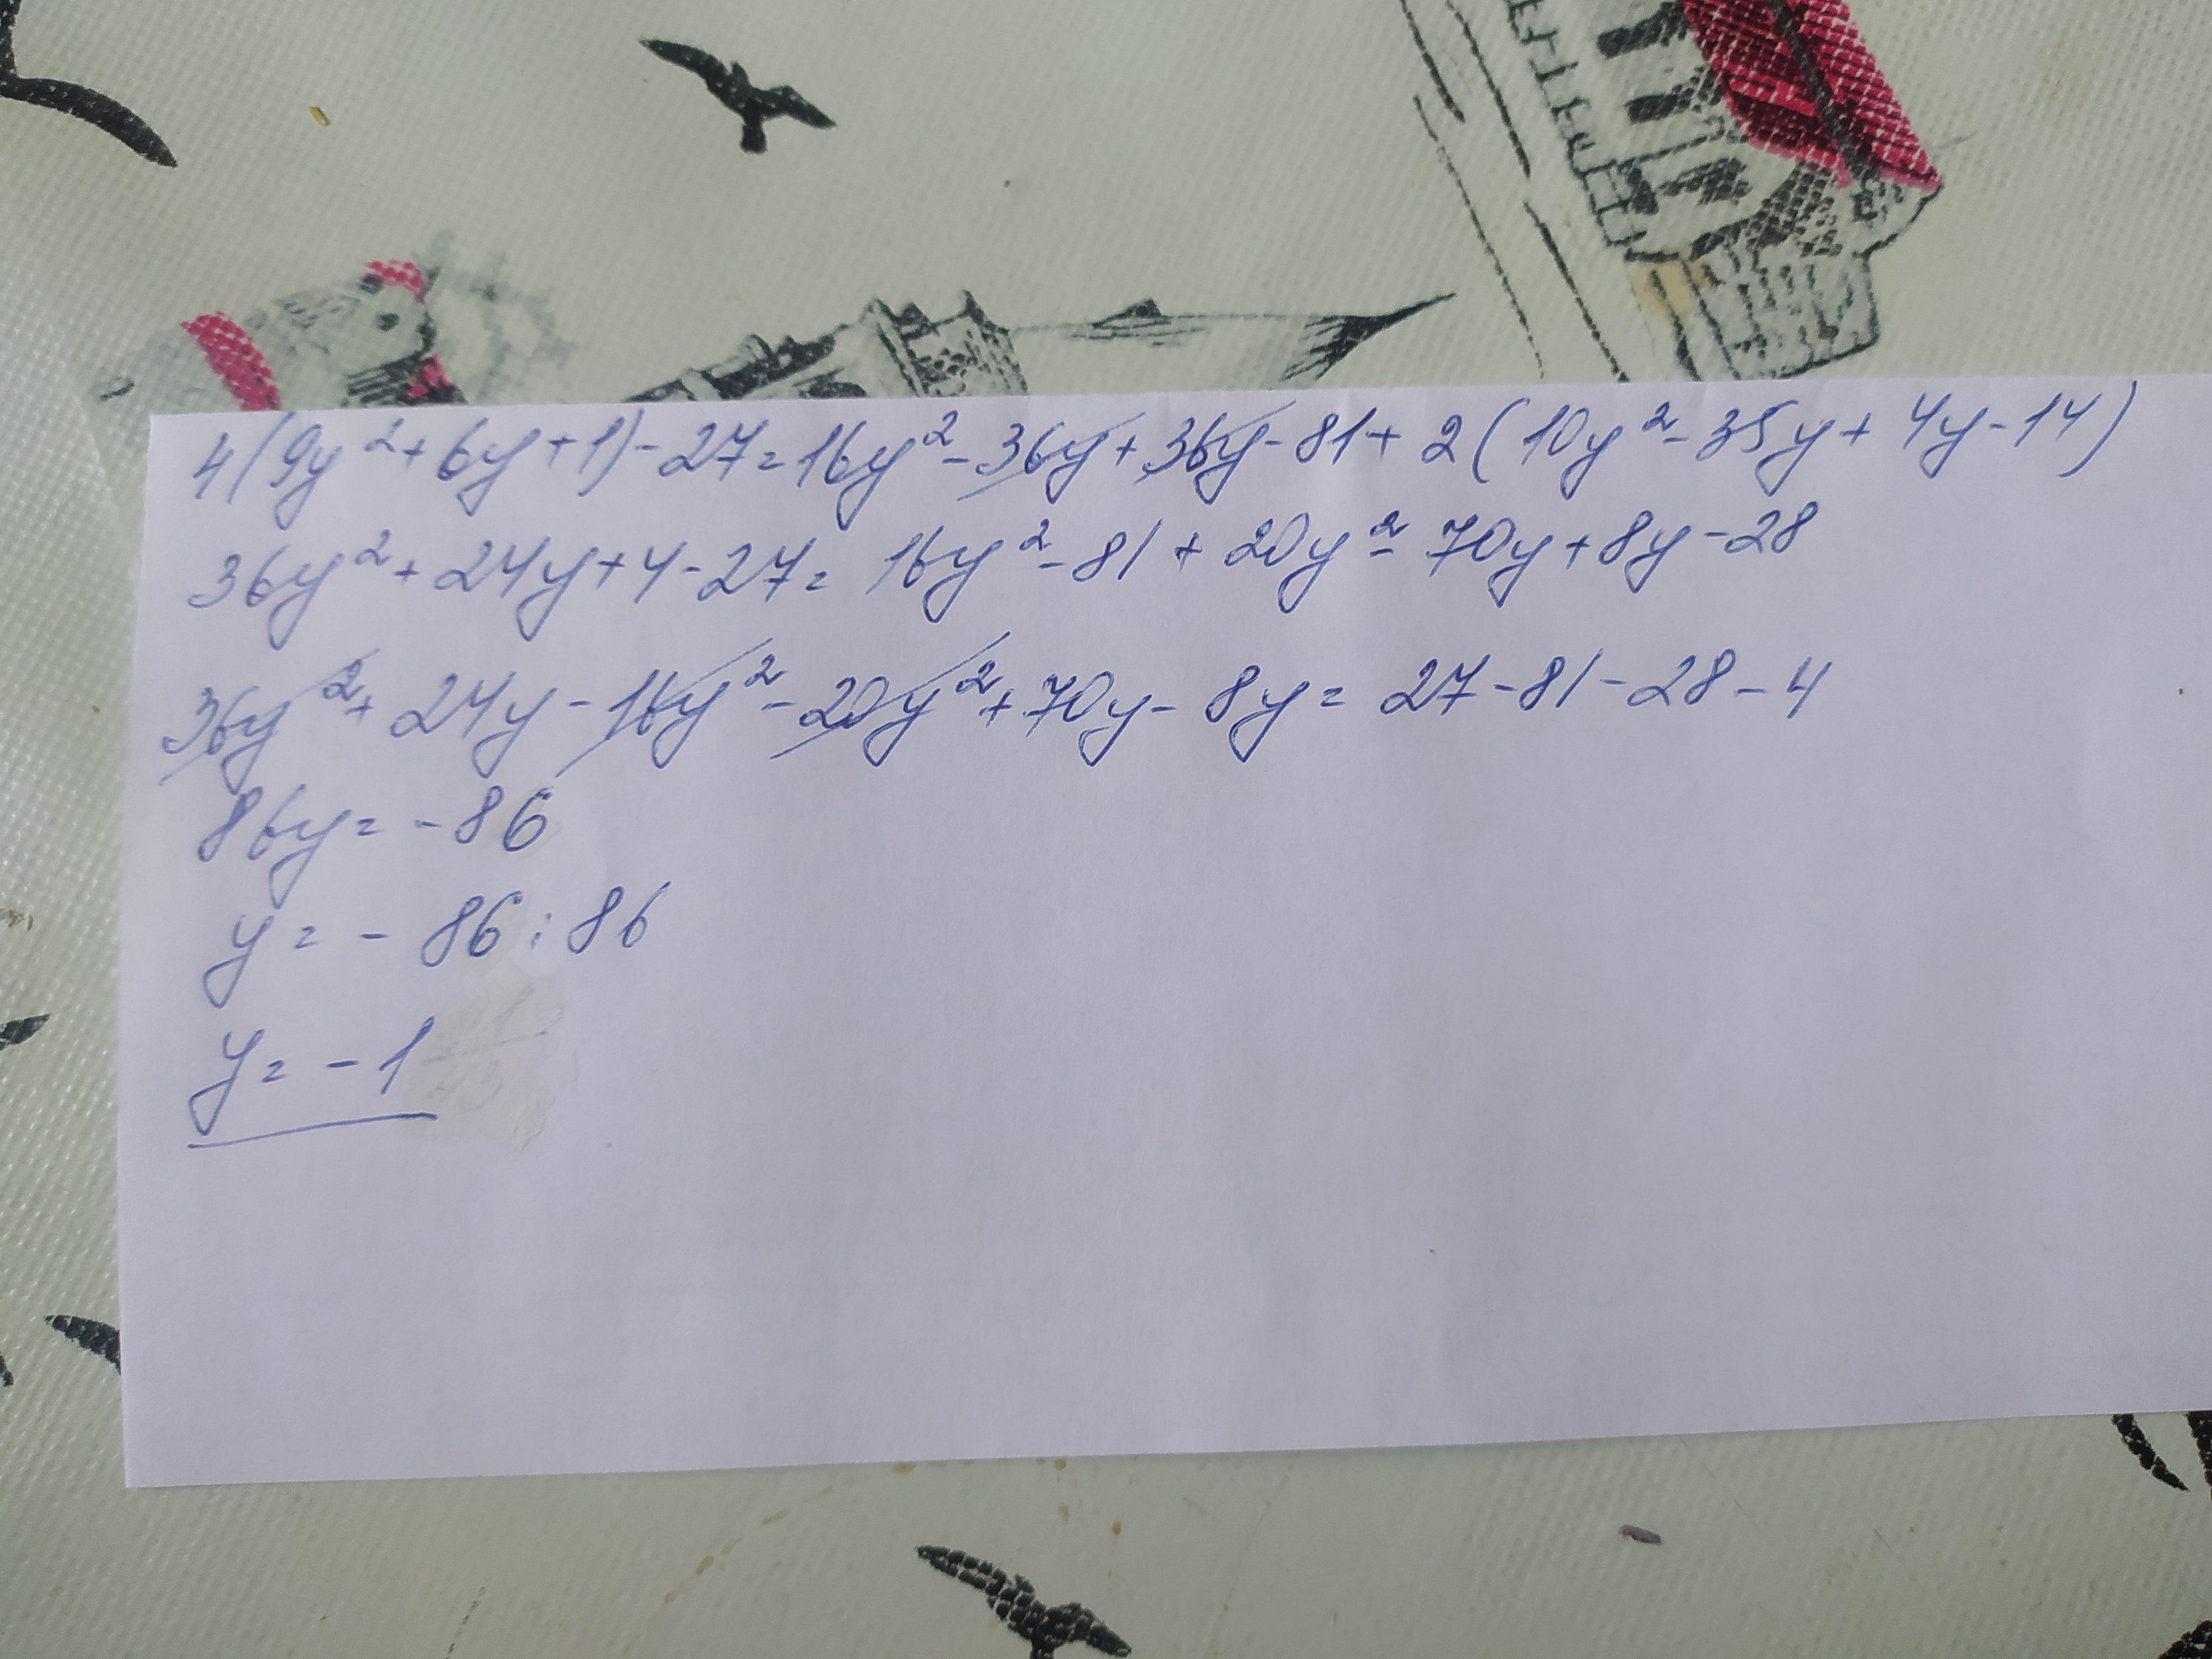 4(9y²+6y+1)-27=16y²-36y+36y-81+2(10y²-35y+4y-14)
36y²+24y+4-27=16y²-81+20y²-70y+8y-28
36y²+24y-16y²-20y²+70y-8y=27-81-28-4
86y=-86
y=-86:86
y=-1